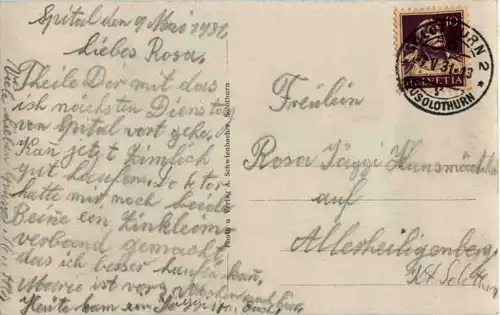 Spital den 9 Mai 1931
Liebes Rosa.
Theile Dir mit das
ich nächsten Dienstag
von Spital fort gehe.
Kan jetzt zimlich
gut laufen. Doktor
hatte mir noch beide
Beine ein Zinkleim
verband gemacht
das ich besser laufen kan.
Marie ist
Heute kam ein Jäggi
Photo u. Verlag A. Schwienbacher, Solothurn
10
HELVETIA
SOLOTHURN
Fräulein
Rosa Jäggi
auf
Allerheiligenberg.
Kt Sol.